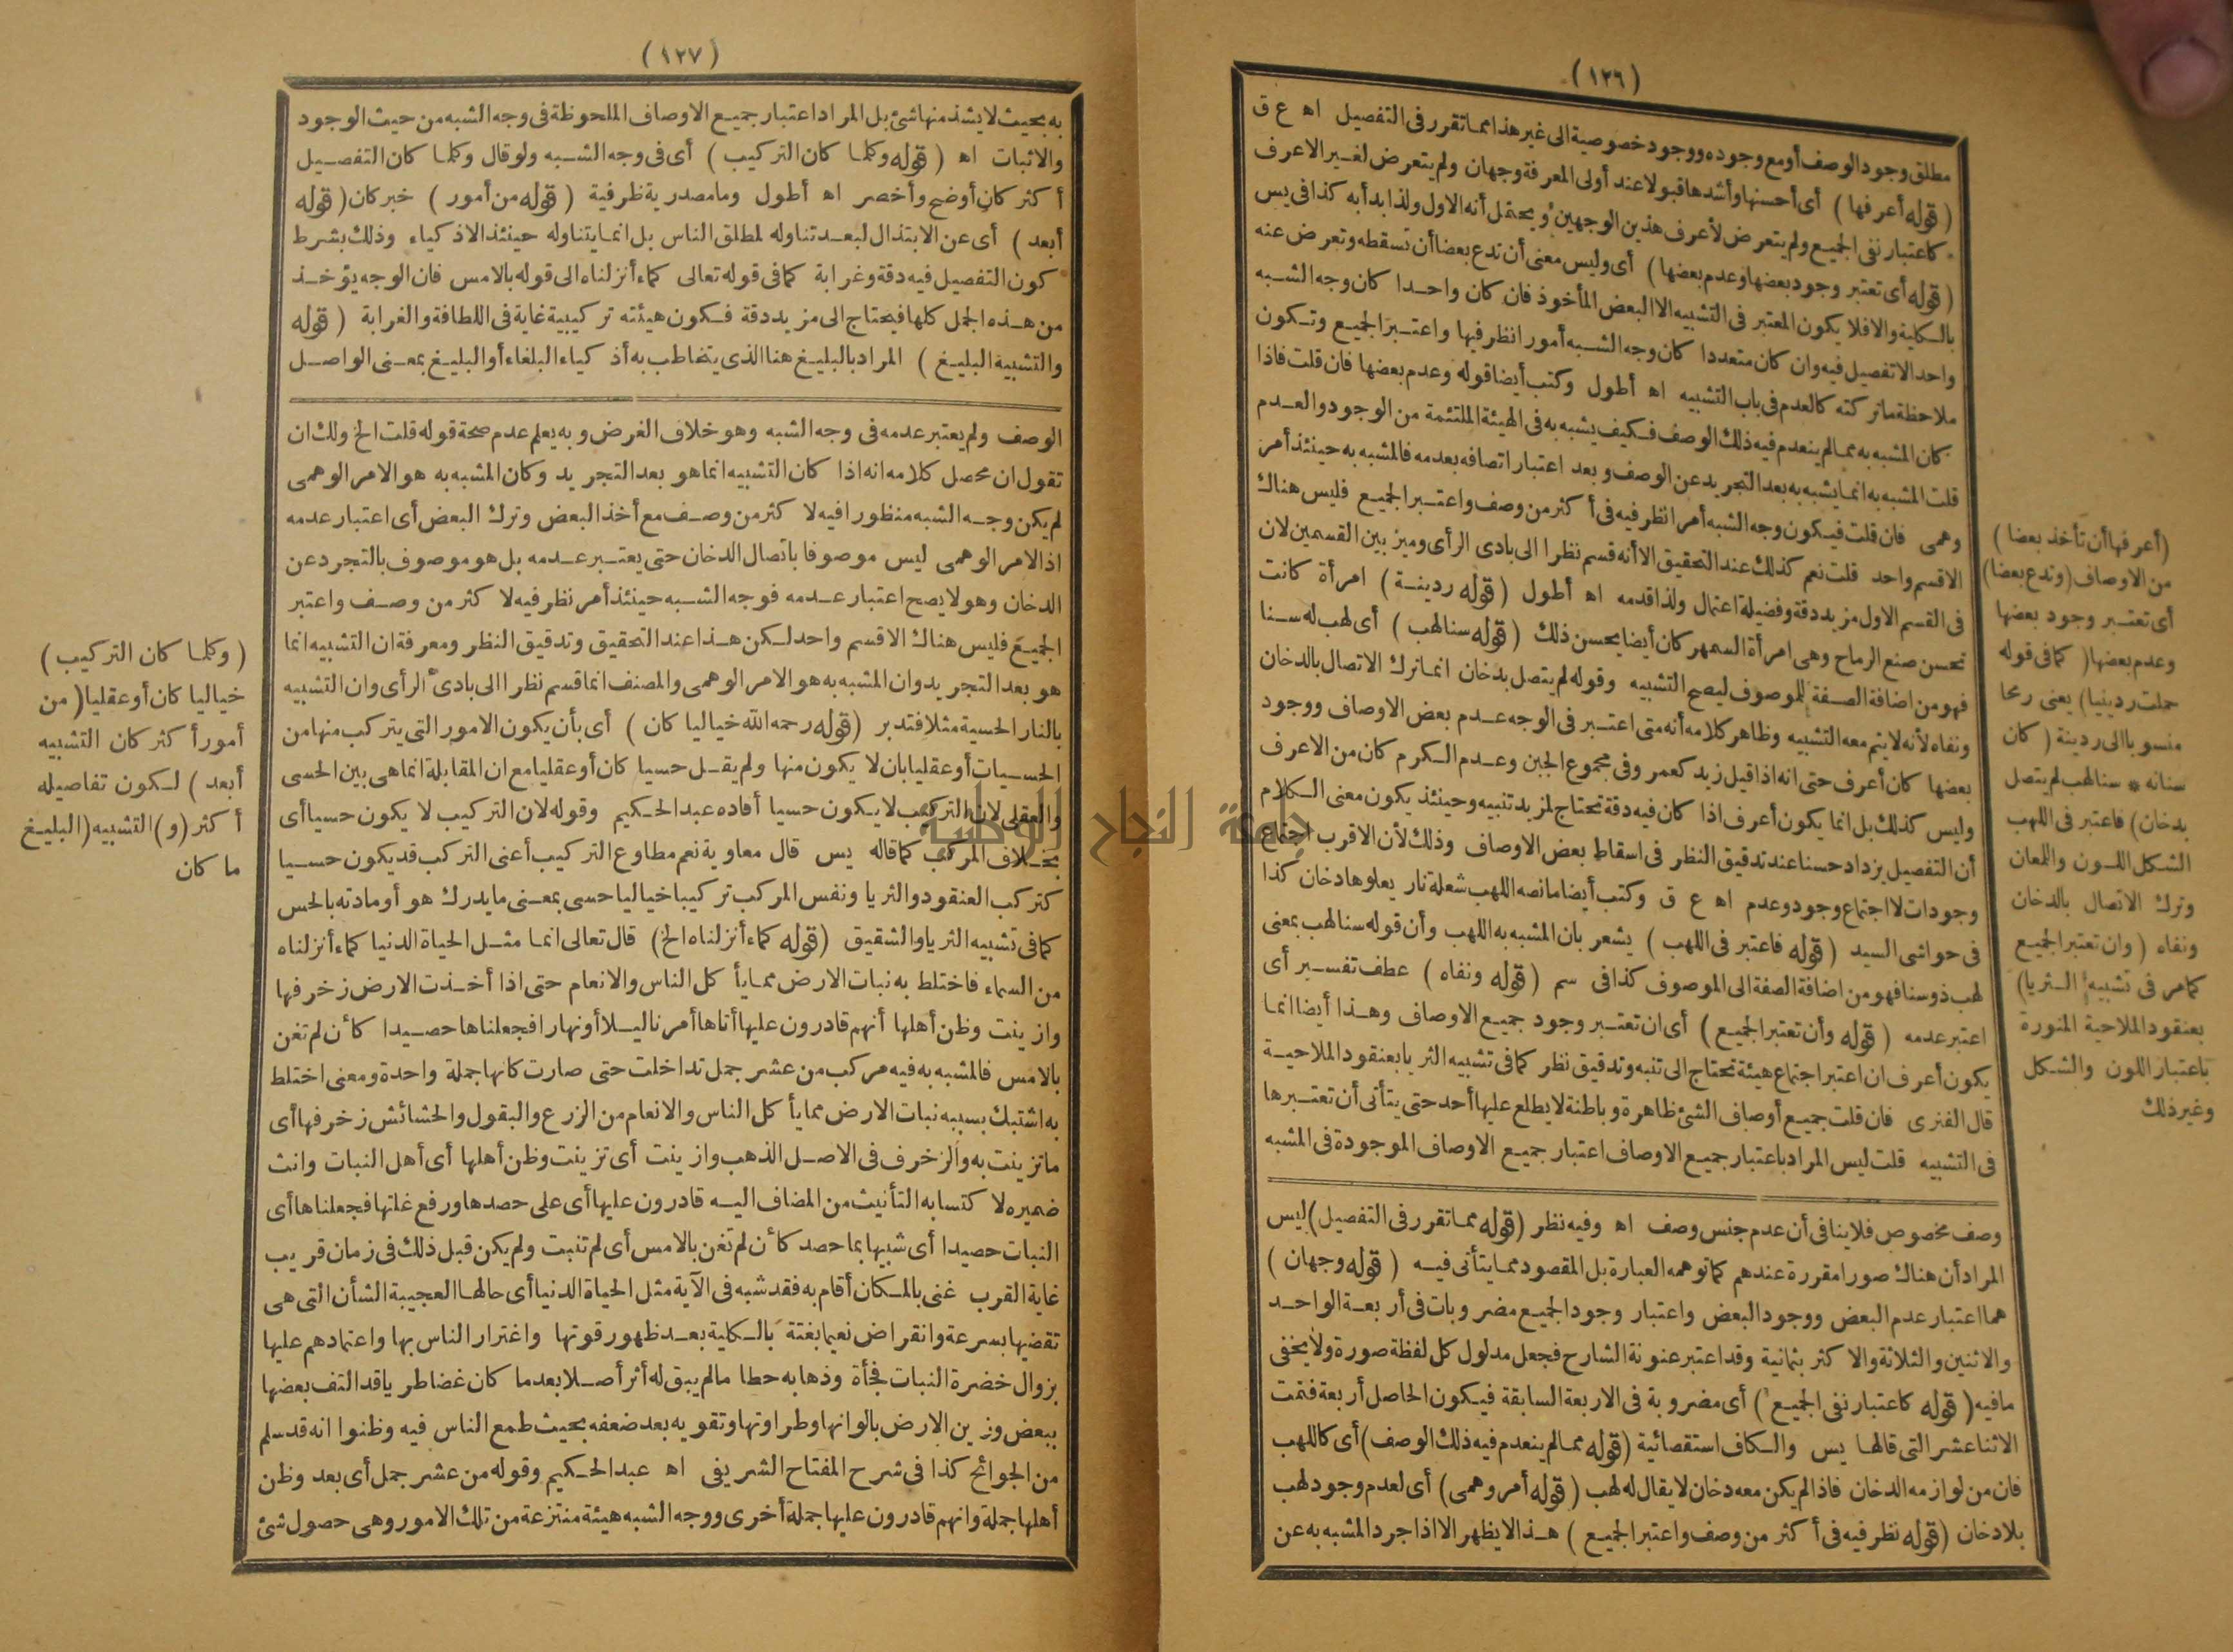 (١٢٦)
مطلق وجود الوصف أو مع وجوده ووجود خصوصية الى غير هذا مما تقرر فى التفصيل اه ع ق
(قوله أعرفها) أى أحسنها وأشدها قبولا عند أولى المعرفة وجهان ولم يتعرض لغير الاعرف
كاعتبار نفى الجميع ولم يتعرض لأعرف هذين الوجهين ويحتمل أنه الاول ولذا بدأ به كذا فى يس
(قوله أى تعتبر وجود بعضها وعدم بعضها) أى وليس معنى أن تدع بعضا أن تسقطه وتعرض عنه
بالكلية والا فلا يكون المعتبر فى التشبيه الا البعض المأخوذ فان كان واحدا كان وجه الشبه
واحد الا تفصيل فيه وان كان متعددا كان وجه الشبه أمورا نظر فيها واعتبر الجميع وتكون
ملاحظة ما تركته كالعدم فى باب التشبيه اه أطول وكتب أيضا قوله وعدم بعضها فان قلت فاذا
كان المشبه به مما لم ينعدم فيه ذلك الوصف فكيف يشبه به فى الهيئة الملتئمة من الوجود والعدم
قلت المشبه به انما يشبه به بعد التجريد عن الوصف وبعد اعتبار اتصافه بعدمه فالمشبه به حينئذ أمر
وهمى فان قلت فيكون وجه الشبه أمرا نظر فيه فى أكثر من وصف واعتبر الجميع فليس هناك
الا قسم واحد قلت نعم كذلك عند التحقيق الا أنه قسم نظرا الى بادى الرأى وميز بين القسمين لان
فى القسم الاول مزيد دقة وفضيلة اعتمال ولذا قدمه اه أطول (قوله ردينة) امرأة كانت
تحسن صنع الرماح وهى امرأة السمهر كان أيضا يحسن ذلك (قوله سنا لهب) أى لهب له سنا
فهو من اضافة الصفة للموصوف ليصح التشبيه وقوله لم يتصل بدخان انما ترك الاتصال بالدخان
ونفاه لأنه لا يتم معه التشبيه وظاهر كلامه أنه متى اعتبر فى الوجه عدم بعض الاوصاف ووجود
بعضها كان أعرف حتى انه اذا قيل زيد كعمر وفى مجموع الجبن وعدم الكرم كان من الاعرف
وليس كذلك بل انما يكون أعرف اذا كان فيه دقة تحتاج لمزيد تنبيه وحينئذ يكون معنى الكلام
أن التفصيل يزداد حسنا عند تدقيق النظر فى اسقاط بعض الاوصاف وذلك لأن الاقرب اجتماع
وجودات لا اجتماع وجود وعدم اه ع ق وكتب أيضا ما نصه اللهب شعلة نار يعلوها دخان كذا
فى حواشى السيد (قوله فاعتبر فى اللهب) يشعر بان المشبه به اللهب وأن قوله سنا لهب بمعنى
لهب ذو سنا فهو من اضافة الصفة الى الموصوف كذا فى سم (قوله ونفاه) عطف تفسير أى
اعتبر عدمه (قوله وأن تعتبر الجميع) أى ان تعتبر وجود جميع الاوصاف وهذا أيضا انما
يكون أعرف ان اعتبر اجتماع هيئة تحتاج الى تنبه وتدقيق نظر كما فى تشبيه الثريا بعنقود الملاحية
قال الفنرى فان قلت جميع أوصاف الشئ ظاهرة وباطنة لا يطلع عليها أحد حتى يتأتى أن تعتبرها
فى التشبيه قلت ليس المراد باعتبار جميع الاوصاف اعتبار جميع الاوصاف الموجودة فى المشبه
وصف مخصوص فلا ينافى أن عدم جنس وصف اه وفيه نظر (قوله مما تقرر فى التفصيل) ليس
المراد أن هناك صورا مقررة عندهم كما توهمه العبارة بل المقصود مما يتأتى فيه (قوله وجهان)
هما اعتبار عدم البعض ووجود البعض واعتبار وجود الجميع مضروبات فى أربعة الواحد
والاثنين والثلاثة والاكثر بثمانية وقد اعتبر عنونة الشارح فجعل مدلول كل لفظة صورة ولا يخفى
ما فيه (قوله كاعتبار نفى الجميع) أى مضروبة فى الاربعة السابقة فيكون الحاصل أربعة فتمت
الاثنا عشر التى قالها يس والكاف استقصائية (قوله مما لم ينعدم فيه ذلك الوصف) أى كاللهب
فان من لوازمه الدخان فاذا لم يكن معه دخان لا يقال له لهب (قوله أمر وهمى) أى لعدم وجود لهب
بلا دخان (قوله نظر فيه فى أكثر من وصف واعتبر الجميع) هذا لا يظهر الا اذا جرد المشبه به عن
(أعرفها أن تأخذ بعضا)
من الاوصاف (وتدع بعضا)
أى تعتبر وجود بعضها
وعدم بعضها (كما فى قوله
حملت ردينيا) يعنى رمحا
منسوبا الى ردينة (كان
سنانه * سنا لهب لم يتصل
بدخان) فاعتبر فى اللهب
الشكل اللون واللمعان
وترك الاتصال بالدخان
ونفاه (وان تعتبر الجميع
كما مر فى تشبيه الثريا)
بعنقود الملاحية المنورة
باعتبار اللون والشكل
وغير ذلك
(١٢٧)
به بحيث لا يشذ منها شئ بل المراد اعتبار جميع الاوصاف الملحوظة فى وجه الشبه من حيث الوجود
والاثبات اه (قوله وكلما كان التركيب) أى فى وجه الشبه ولو قال وكلما كان التفصيل
أكثر كان أوضح وأخصر اه أطول وما مصدرية ظرفية (قوله من أمور) خبر كان (قوله
أبعد) أى عن الابتذال لبعد تناوله لمطلق الناس بل انما يتناوله حينئذ الاذكياء وذلك بشرط
كون التفصيل فيه دقة وغرابة كما فى قوله تعالى كماء أنزلناه الى قوله بالامس فان الوجه يؤخذ
من هذه الجمل كلها فيحتاج الى مزيد دقة فكون هيئته تركيبية غاية فى اللطافة والغرابة (قوله
والتشبيه البليغ) المراد بالبليغ هنا الذى يتخاطب به أذكياء البلغاء أو البليغ بمعنى الواصل
الوصف ولم يعتبر عدمه فى وجه الشبه وهو خلاف الغرض وبه يعلم عدم صحة قوله قلت الخ ولك ان
تقول ان محصل كلامه انه اذا كان التشبيه انما هو بعد التجريد وكان المشبه به هو الامر الوهمى
لم يكن وجه الشبه منظورا فيه لاكثر من وصف مع أخذ البعض وترك البعض أى اعتبار عدمه
اذ الامر الوهمى ليس موصوفا باتصال الدخان حتى يعتبر عدمه بل هو موصوف بالتجرد عن
الدخان وهو لا يصح اعتبار عدمه فوجه الشبه حينئذ أمر نظر فيه لاكثر من وصف واعتبر
الجميع فليس هناك الا قسم واحد لكن هذا عند التحقيق وتدقيق النظر ومعرفة ان التشبيه انما
هو بعد التجريد وان المشبه به هو الامر الوهمى والمصنف انما قسم نظرا الى بادئ الرأى وان التشبيه
بالنار الحسية مثلا فتدبر (قوله رحمه الله خياليا كان) أى بأن يكون الامور التى يتركب منها من
الحسيات أو عقليا بان لا يكون منها ولم يقل حسيا كان أو عقليا مع ان المقابلة انما هى بين الحسى
والعقلى لان التركيب لا يكون حسيا أفاده عبد الحكيم وقوله لان التركيب لا يكون حسيا أى
بخلاف المركب كما قاله يس قال معاوية نعم مطاوع التركيب أعنى التركب قد يكون حسيا
كتركب العنقود والثريا ونفس المركب تركيبا خياليا حسى بمعنى ما يدرك هو أو مادته بالحس
كما فى تشبيه الثريا والشقيق (قوله كماء أنزلناه الخ) قال تعالى انما مثل الحياة الدنيا كماء أنزلناه
من السماء فاختلط به نبات الارض مما يأكل الناس والانعام حتى اذا أخذت الارض زخرفها
وازينت وظن أهلها أنهم قادرون عليها أتاها أمرنا ليلا أو نهارا فجعلناها حصيدا كأن لم تغن
بالامس فالمشبه به فيه مركب من عشر جمل تداخلت حتى صارت كانها جملة واحدة ومعنى اختلط
به اشتبك بسببه نبات الارض مما يأكل الناس والانعام من الزرع والبقول والحشائش زخرفها أى
ما تزينت به والزخرف فى الاصل الذهب وازينت أى تزينت وظن أهلها أى أهل النبات وانث
ضميره لاكتسابه التأنيث من المضاف اليه قادرون عليها أى على حصدها ورفع غلتها فجعلناها أى
النبات حصيدا أى شبيها بما حصد كأن لم تغن بالامس أى لم تنبت ولم يكن قبل ذلك فى زمان قريب
غاية القرب غنى بالمكان أقام به فقد شبه فى الآية مثل الحياة الدنيا أى حالها العجيبة الشأن التى هى
تقضيها بسرعة وانقراض نعيما بغتة بالكلية بعد ظهور قوتها واغترار الناس بها واعتمادهم عليها
بزوال خضرة النبات فجأة وذهابه حطاما لم يبق له أثر أصلا بعد ما كان غضا طريا قد التف بعضها
ببعض وزين الارض بالوانها وطراوتها وتقويه بعد ضعفه بحيث طمع الناس فيه وظنوا انه قد سلم
من الجوائح كذا فى شرح المفتاح الشريفى اه عبد الحكيم وقوله من عشر جمل أى بعد وظن
أهلها جملة وانهم قادرون عليها جملة أخرى ووجه الشبه هيئة منتزعة من تلك الامور وهى حصول شئ
(وكلما كان التركيب)
خياليا كان أو عقليا (من
أمور أكثر كان التشبيه
أبعد) لكون تفاصيله
أكثر (و) التشبيه (البليغ
ما كان
جامعة النجاح الوطنية